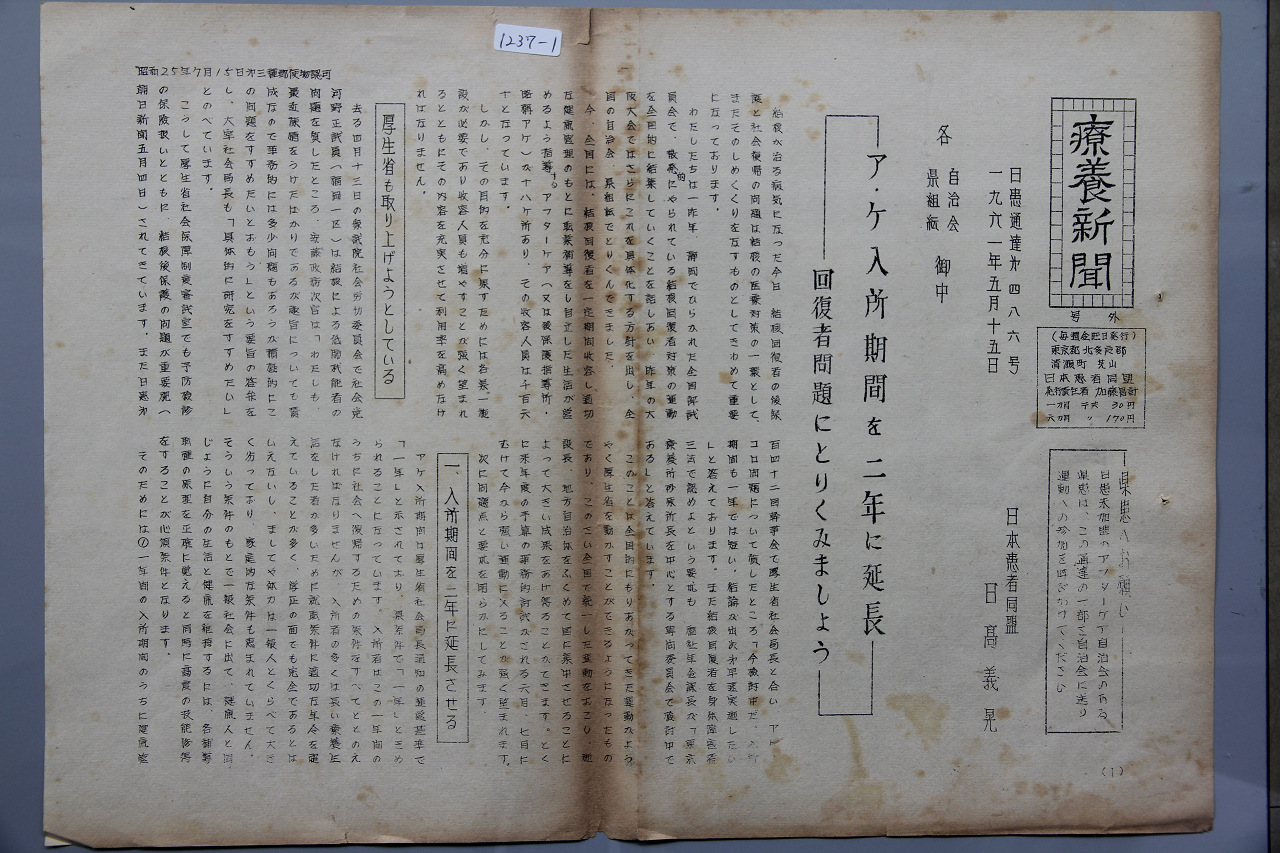 1237-1
昭和25年7月15日第三種郵便物認可
療養新聞
号外
(毎週金曜日発行)
東京都北多摩郡
清瀬町 芝山
日本患者同盟
一ヵ月 30円
六ヵ月 〃 170円
県患へお願い
日患未加盟のアフターケア自治会のある
県患は、この通達の一部を自治会に送り
運動への参加を呼びかけてください
日患通達才四八六号
一九六一年五月十五日
日本患者同盟
日高義晃
各 自治会 県組織 御中
ア・ケ入所期間を二年に延長
回復者問題にとりくみましょう
結核が治る病気になった今日 結核回復者の後保
護と社会復帰の問題は結核の医療対策の一環として、
またそのしめくくりを互すものとしてきわめて重要
になっております。
わたしたちは一昨年、静岡でひらかれた全国
員会で、散発的にやられている結核回復者対策の運動
を全国的に結集していくことを話しあい、昨年の大
阪大会ではさらにこれを具体化する方針を出し、全
国の自治会、県組織でとりくんできました。
今、全国には、結核回復者を一定期間収容し、適切
な健康管理のもとに職業補導をし自立した生活が営
めるよう指導する、アフターケア(又は後保護指導所・
略称アケ)が十八ヶ所あり、その收容人員は千百六
十となっています。
しかし、その目的を充分に果すためには各県一施
設が必要であり收容人員も増やすことが強く望まれ
るとともにその内容を充実させて利用率を高めなけ
ればなりません。
厚生省も取り上げようとしている
去る四月十三日の衆議院社会労仂委員会で社会党
河野正議員(福岡一区)は結核による低肺機能者の
問題を質したところ、安藤政務次官は「わたしも、
最近陳情をうけたばかりであるが趣旨についても賛
成なので事務的には多少問題もあろうが積極的にこ
の問題をすすめたいとおもう」という要旨の答弁を
し、大宰社会局長も「具体的に研究をすすめたい」
とのべています。
こうして厚生省社会保障制度審議室でも予防検診
の保険扱いとともに、結核後保護の問題が重要視へ
朝日新聞五月四日)されてきています。また日患才
百四十二回幹事会で厚生省社会局長と会い アフ
コロ問題について質したところ「今検討中だ、入所
期間も一年では短い、結論が出次才早速実施したい
」と答えております。また結核回復者を身体障害者
あるしと答えています。
このことは全国的にもりあがってきた運動がよう
やく厚生省を動かすことができるようになったもの
であり、このさい全国で統一した運動をおこし、施
設長、地方自治体をふくめて国に集中させることに
よって大きい成果をあげ得ることができます。とく
に来年度の予算の事務的折衝がされる六月、七月に
むけて今から強い運動に入ることが強く望まれます。
次に問題点と要求を明らかにしてみます。
一、入所期間を二年に延長させる
アケ入所期間は厚生省社会局長通知の運営基準で
「一年」と示されており、県条件で「一年」ときめ
られることになっています。入所者はこの一年間の
うちに社会へ復帰するための条件をすべてととのえ
なければなりませんが、入所者の多くは長い療養生
活をした者が多いために就職条件に適切な年令を超
えていることが多く、学正の面でも完全であるとは
いえないし、ましてや体力は一般人とくらべて大き
く劣っており、家庭的な条件も恵まれていません。
そういう条件のもとで一般社会に出て、健康人と同
じように自分の生活と健康を維持するには、各補導
職種の原理を正確に覚えると同時に高度の技能修得
をすることが必須条件となります。
そのためには①一年間の入所期間のうちに健康管
(1)